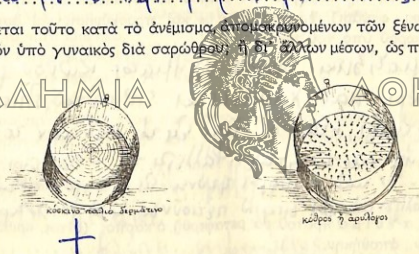 ται τοῦτο κατὰ τὸ ἀνέμισμα, ἀπομακρυνομένων τῶν ξένω
ὸν ὑπὸ γυναικὸς διὰ σαρώθρου; ἢ δι' ἄλλων μέσων, ὡς π
ΑΔΗΜΙΑ ΑΘΗ
κόσκινο παλιό δερμάτινο
κόθρος ἢ ἀριλόγος